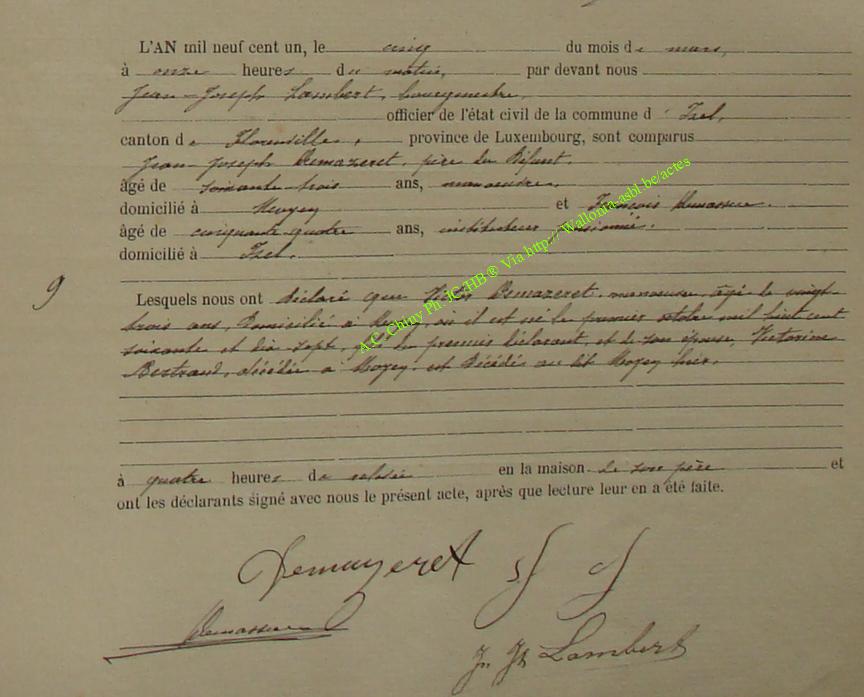 L'AN mil neuf cent un, le cinq du mois de mars,
à onze heures du matin, par devant nous
Jean-Joseph Lambert, bourgmestre,
officier de l'état civil de la commune d' Izel,
canton de Florenville, province de Luxembourg, sont comparus
Jean-Joseph Demazeret, père du défunt,
âgé de soixante-trois ans, manoeuvre,
domicilié à Moyen et François Demasseur,
âgé de cinquante-quatre ans, instituteur pensionné,
domicilié à Izel.
9
Lesquels nous ont déclaré que Victor Demazeret, manoeuvre, âgé de vingt-
trois ans, domicilié à Moyen, où il est né le premier octobre mil huit cent
soixante et dix-sept, fils du premier déclarant, et de son épouse, Victorine
Bertrand, décédée à Moyen, est décédé au dit Moyen hier,
à quatre heures de relevée en la maison de son père et
ont les déclarants signé avec nous le présent acte, après que lecture leur en a été faite.
Demazeret JJ
Demasseur
J. Jh Lambert
A.C. Chiny Ph. JC-HB ® Via http:// Wallonia-asbl.be/actes